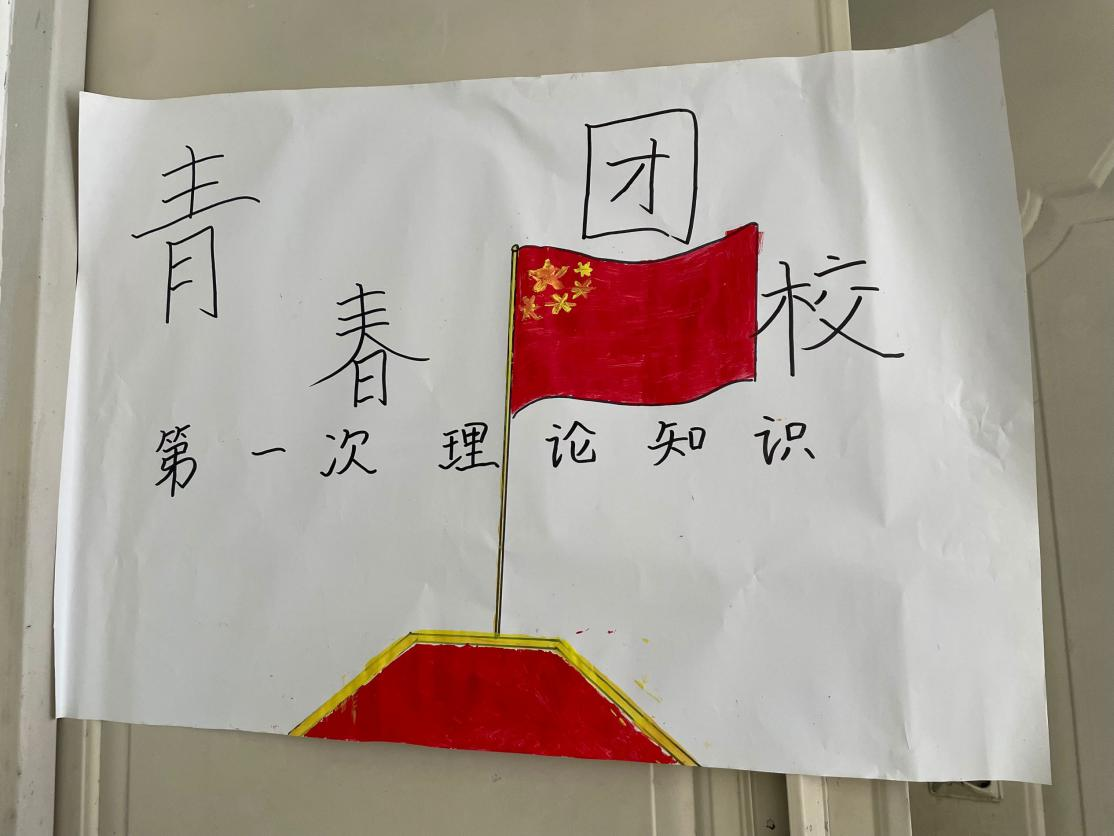 青春团校
第一次理论知识